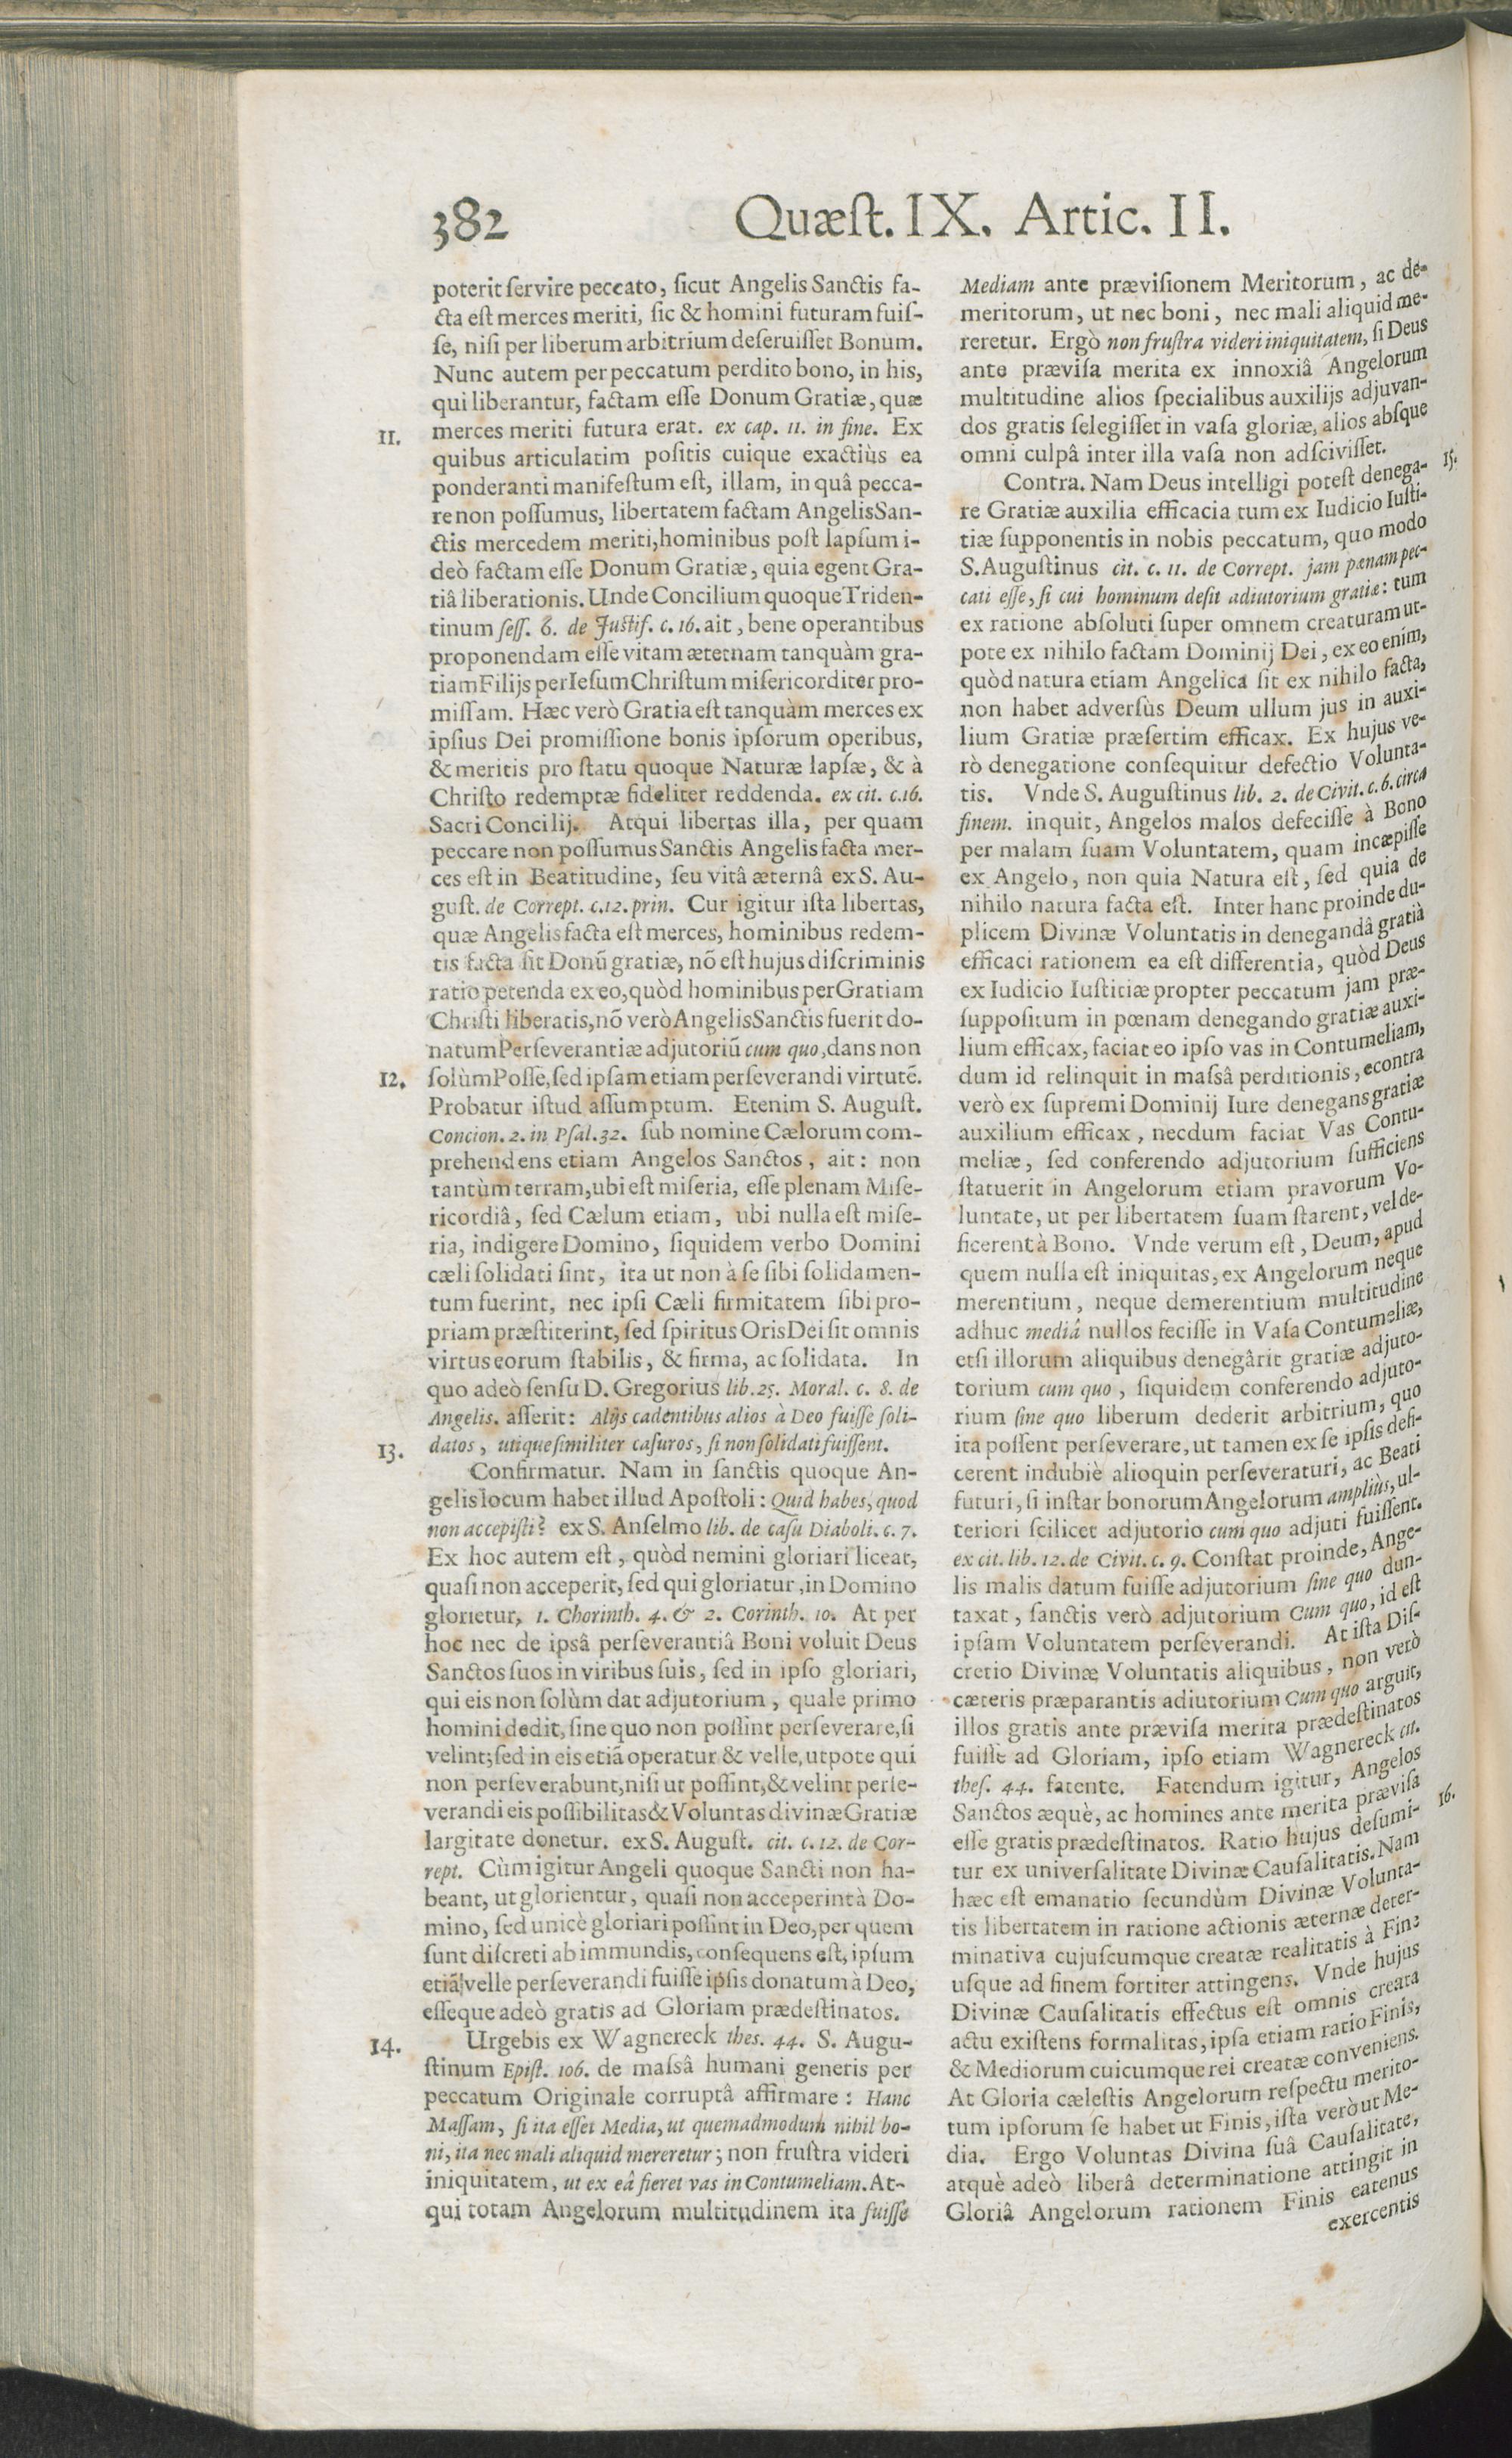 382 Quæſt. IX. Artic. II.
poterit ſervire peccato, ſicut Angelis Sanctis fa-
cta eſt merces meriti, ſic & homini futuram fuiſ-
ſe, niſi per liberum arbitrium deſeruiſſet Bonum.
Nunc autem per peccatum perdito bono, in his,
qui liberantur, factam eſſe Donum Gratiæ, quæ
11. merces meriti futura erat. ex cap. 11. in fine. Ex
quibus articulatim poſitis cuique exactiùs ea
ponderanti manifeſtum eſt, illam, in quâ pecca-
re non poſſumus, libertatem factam Angelis San-
ctis mercedem meriti, hominibus poſt lapſum i-
deò factam eſſe Donum Gratiæ, quia egent Gra-
tiâ liberationis. Unde Concilium quoque Triden-
tinum ſeſſ. 6. de Juſtif. c. 16. ait, bene operantibus
proponendam eſſe vitam æternam tanquàm gra-
tiam Filijs per Ieſum Chriſtum miſericorditer pro-
miſſam. Hæc verò Gratia eſt tanquàm merces ex
ipſius Dei promiſſione bonis ipſorum operibus,
& meritis pro ſtatu quoque Naturæ lapſæ, & à
Chriſto redemptæ fideliter reddenda. ex cit. c.16.
Sacri Concilij. Atqui libertas illa, per quam
peccare non poſſumus Sanctis Angelis facta mer-
ces eſt in Beatitudine, ſeu vitâ æternâ ex S. Au-
guſt. de Corrept. c.12. prin. Cur igitur iſta libertas,
quæ Angelis facta eſt merces, hominibus redem-
tis facta ſit Donũ gratiæ, nõ eſt hujus diſcriminis
ratio petenda ex eo, quòd hominibus per Gratiam
Chriſti liberatis, nõ verò Angelis Sanctis fuerit do-
natum Perſeverantiæ adjutoriũ cum quo, dans non
12. ſolùm Poſſe, ſed ipſam etiam perſeverandi virtutẽ.
Probatur iſtud aſſumptum. Etenim S. Auguſt.
Concion. 2. in Pſal.32. ſub nomine Cælorum com-
prehendens etiam Angelos Sanctos, ait: non
tantùm terram, ubi eſt miſeria, eſſe plenam Miſe-
ricordiâ, ſed Cælum etiam, ubi nulla eſt miſe-
ria, indigere Domino, ſiquidem verbo Domini
cæli ſolidati ſint, ita ut non à ſe ſibi ſolidamen-
tum fuerint, nec ipſi Cæli firmitatem ſibi pro-
priam præſtiterint, ſed ſpiritus Oris Dei ſit omnis
virtus eorum ſtabilis, & firma, ac ſolidata. In
quo adeò ſenſu D. Gregorius lib.25. Moral. c. 8. de
Angelis. aſſerit: Alijs cadentibus alios à Deo fuiſſe ſoli-
13. datos, utique ſimiliter caſuros, ſi non ſolidati fuiſſent.
Confirmatur. Nam in ſanctis quoque An-
gelis locum habet illud Apoſtoli: Quid habes, quod
non accepiſti? ex S. Anſelmo lib. de caſu Diaboli. c. 7.
Ex hoc autem eſt, quòd nemini gloriari liceat,
quaſi non acceperit, ſed qui gloriatur, in Domino
glorietur, 1. Chorinth. 4. & 2. Corinth. 10. At per
hoc nec de ipsâ perſeverantiâ Boni voluit Deus
Sanctos ſuos in viribus ſuis, ſed in ipſo gloriari,
qui eis non ſolùm dat adjutorium, quale primo
homini dedit, ſine quo non poſſint perſeverare, ſi
velint; ſed in eis etiã operatur & velle, utpote qui
non perſeverabunt, niſi ut poſſint, & velint perſe-
verandi eis poſſibilitas & Voluntas divinæ Gratiæ
largitate donetur. ex S. Auguſt. cit. c. 12. de Cor-
rept. Cùm igitur Angeli quoque Sancti non ha-
beant, ut glorientur, quaſi non acceperint à Do-
mino, ſed unicè gloriari poſſint in Deo, per quem
ſunt diſcreti ab immundis, conſequens eſt, ipſum
etiã velle perſeverandi fuiſſe ipſis donatum à Deo,
eſſeque adeò gratis ad Gloriam prædeſtinatos.
14. Urgebis ex Wagnereck theſ. 44. S. Augu-
ſtinum Epiſt. 106. de maſsâ humani generis per
peccatum Originale corruptâ affirmare: Hanc
Maſſam, ſi ita eſſet Media, ut quemadmodum nihil bo-
ni, ita nec mali aliquid mereretur; non fruſtra videri
iniquitatem, ut ex eâ fieret vas in Contumeliam. At-
qui totam Angelorum multitudinem ita fuiſſe
Mediam ante præviſionem Meritorum, ac de-
meritorum, ut nec boni, nec mali aliquid me-
reretur. Ergò non fruſtra videri iniquitatem, ſi Deus
ante præviſa merita ex innoxiâ Angelorum
multitudine alios ſpecialibus auxilijs adjuvan-
dos gratis ſelegiſſet in vaſa gloriæ, alios abſque
omni culpâ inter illa vaſa non adſciviſſet.
15. Contra. Nam Deus intelligi poteſt denega-
re Gratiæ auxilia efficacia tum ex Iudicio Iuſti-
tiæ ſupponentis in nobis peccatum, quo modo
S. Auguſtinus cit. c. 11. de Corrept. jam pænam pec-
cati eſſe, ſi cui hominum deſit adiutorium gratiæ: tum
ex ratione abſoluti ſuper omnem creaturam ut-
pote ex nihilo factam Dominij Dei, ex eo enim,
quòd natura etiam Angelica ſit ex nihilo facta,
non habet adverſùs Deum ullum jus in auxi-
lium Gratiæ præſertim efficax. Ex hujus ve-
rò denegatione conſequitur defectio Volunta-
tis. Vnde S. Auguſtinus lib. 2. de Civit. c. 6. circa
finem. inquit, Angelos malos defeciſſe à Bono
per malam ſuam Voluntatem, quam incæpiſſe
ex Angelo, non quia Natura eſt, ſed quia de
nihilo natura facta eſt. Inter hanc proinde du-
plicem Divinæ Voluntatis in denegandâ gratiâ
efficaci rationem ea eſt differentia, quòd Deus
ex Iudicio Iuſtitiæ propter peccatum jam præ-
ſuppoſitum in pœnam denegando gratiæ auxi-
lium efficax, faciat eo ipſo vas in Contumeliam,
dum id relinquit in maſsâ perditionis, econtra
verò ex ſupremi Dominij Iure denegans gratiæ
auxilium efficax, necdum faciat Vas Contu-
meliæ, ſed conferendo adjutorium ſufficiens
ſtatuerit in Angelorum etiam pravorum Vo-
luntate, ut per libertatem ſuam ſtarent, vel de-
ficerent à Bono. Vnde verum eſt, Deum, apud
quem nulla eſt iniquitas, ex Angelorum neque
merentium, neque demerentium multitudine
adhuc mediâ nullos feciſſe in Vaſa Contumeliæ,
etſi illorum aliquibus denegârit gratiæ adjuto-
torium cum quo, ſiquidem conferendo adjuto-
rium ſine quo liberum dederit arbitrium, quo
ita poſſent perſeverare, ut tamen ex ſe ipſis defi-
cerent indubiè alioquin perſeveraturi, ac Beati
futuri, ſi inſtar bonorum Angelorum ampliùs, ul-
teriori ſcilicet adjutorio cum quo adjuti fuiſſent.
ex cit. lib. 12. de Civit. c. 9. Conſtat proinde, Ange-
lis malis datum fuiſſe adjutorium ſine quo dun-
taxat, ſanctis verò adjutorium Cum quo, id eſt
ipſam Voluntatem perſeverandi. At iſta Diſ-
cretio Divinæ Voluntatis aliquibus, non verò
cæteris præparantis adiutorium Cum quo arguit,
illos gratis ante præviſa merita prædeſtinatos
fuiſſe ad Gloriam, ipſo etiam Wagnereck cit.
theſ. 44. fatente. Fatendum igitur, Angelos
Sanctos æquè, ac homines ante merita præviſa
16. eſſe gratis prædeſtinatos. Ratio hujus deſumi-
tur ex univerſalitate Divinæ Cauſalitatis. Nam
hæc eſt emanatio ſecundùm Divinæ Volunta-
tis libertatem in ratione actionis æternæ deter-
minativa cujuſcumque creatæ realitatis à Fine
uſque ad finem fortiter attingens. Vnde hujus
Divinæ Cauſalitatis effectus eſt omnis creata
actu exiſtens formalitas, ipſa etiam ratio Finis,
& Mediorum cuicumque rei creatæ conveniens.
At Gloria cæleſtis Angelorum reſpectu merito-
tum ipſorum ſe habet ut Finis, iſta verò ut Me-
dia. Ergo Voluntas Divina ſuâ Cauſalitate,
atquè adeò liberâ determinatione attingit in
Gloriâ Angelorum rationem Finis eatenus
exercentis